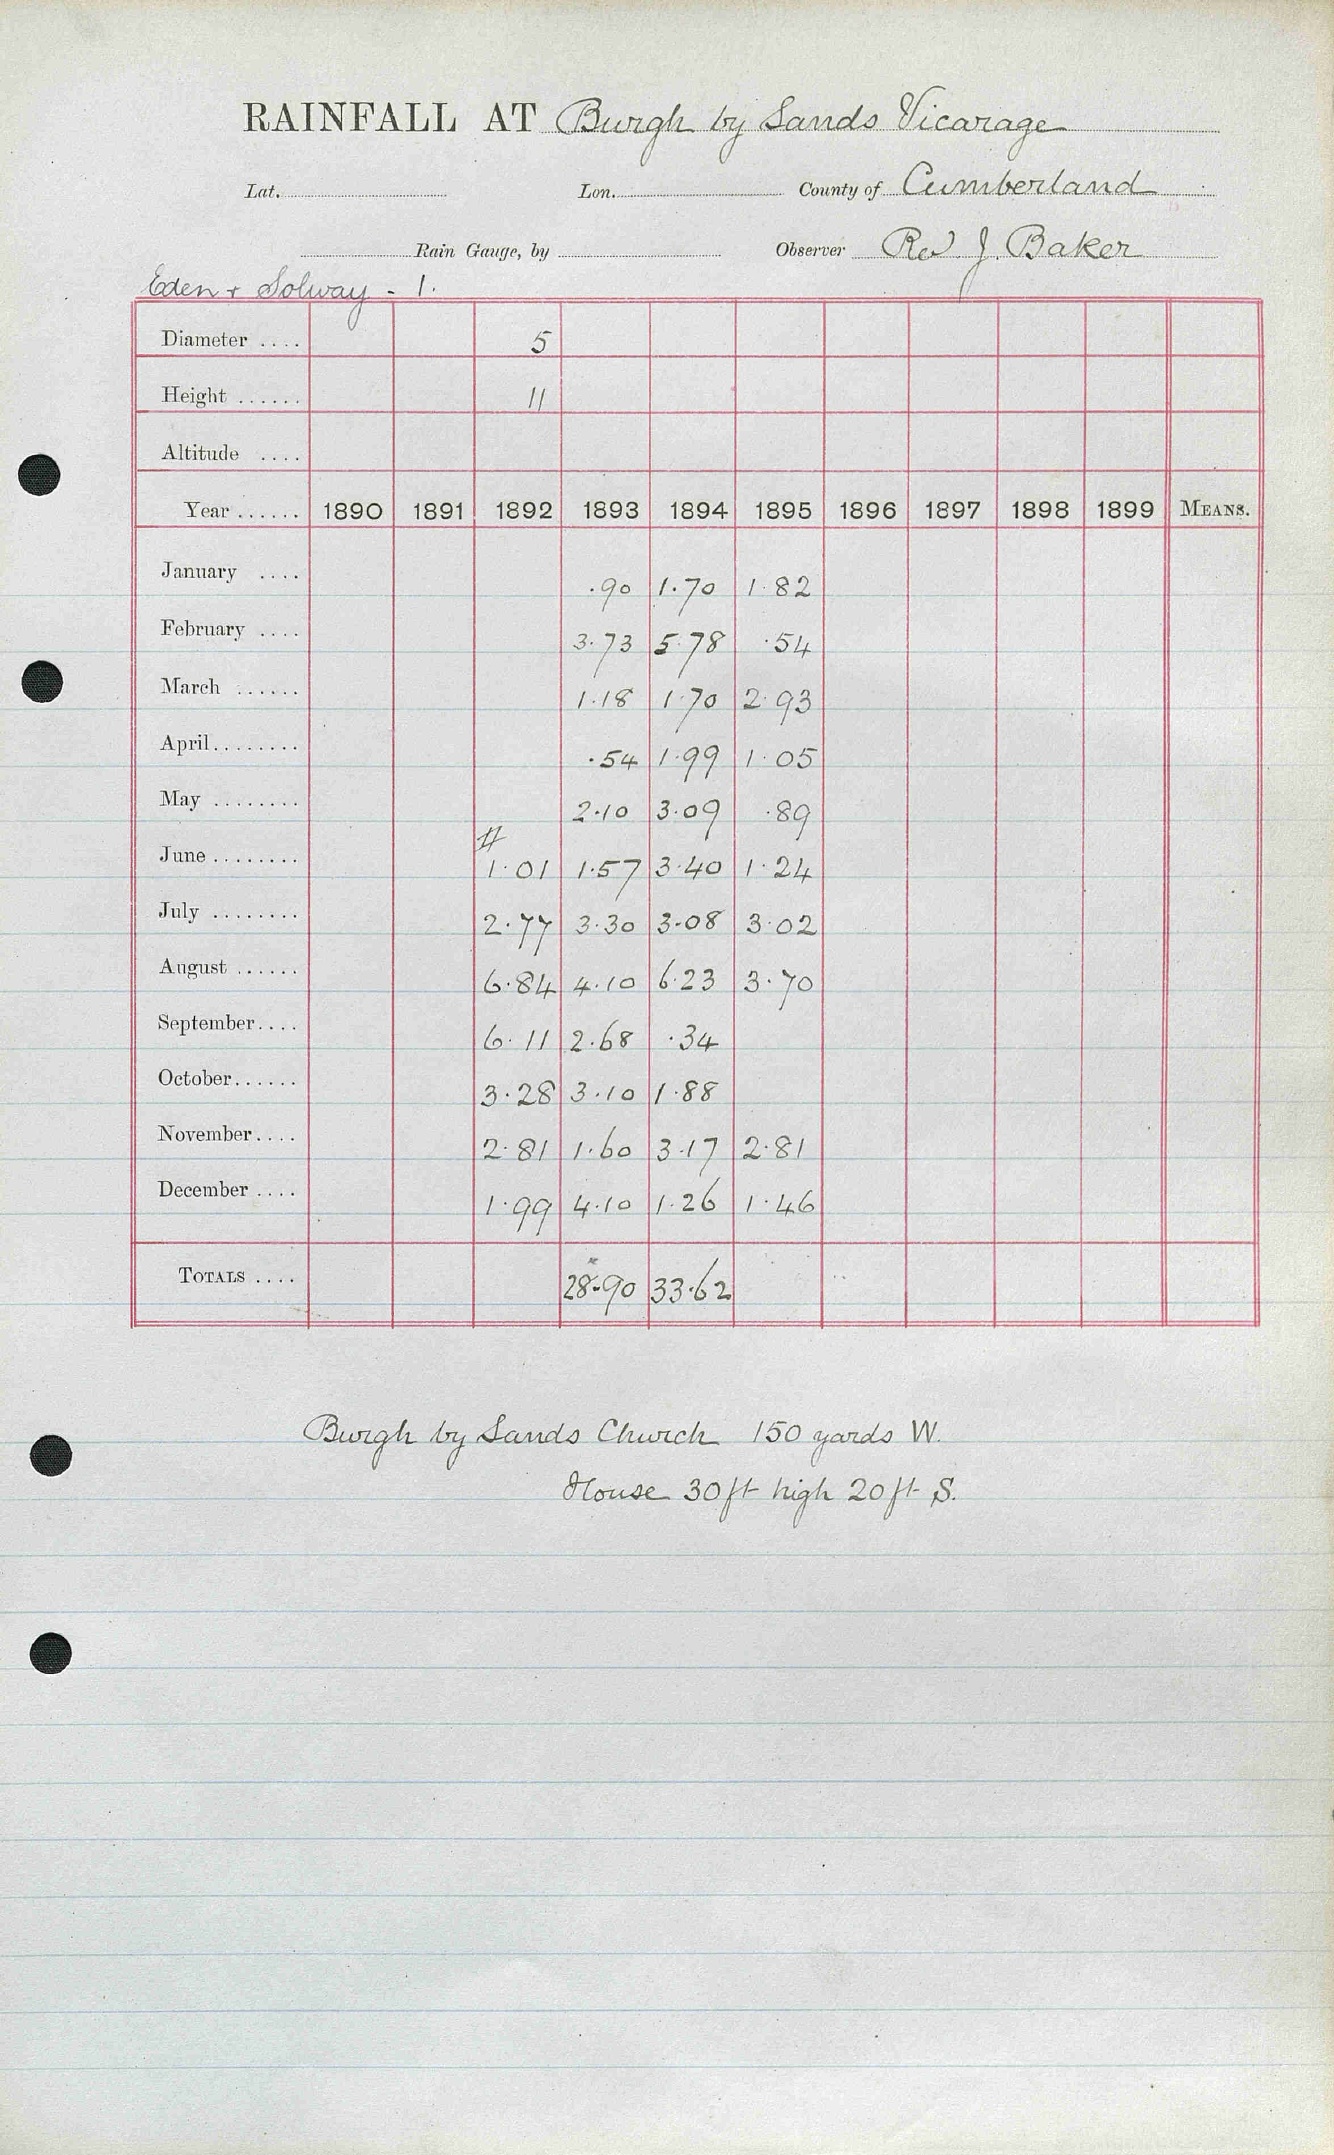 RAINFALL AT Burgh by Sands Vicarage
Lat. Lon. County of Cumberland
Rain Gauge, by Observer Rev J. Baker
Eden & Solway - 1.
Diameter .... 5
Height ...... 11
Altitude ....
Year ...... 1890 1891 1892 1893 1894 1895 1896 1897 1898 1899 MEANS.
January .... .90 1.70 1.82
February .... 3.73 5.78 .54
March ...... 1.18 1.70 2.93
April ........ .54 1.99 1.05
May ........ 2.10 3.09 .89
#
June ........ 1.01 1.57 3.40 1.24
July ........ 2.77 3.30 3.08 3.02
August ...... 6.84 4.10 6.23 3.70
September .... 6.11 2.68 .34
October ...... 3.28 3.10 1.88
November .... 2.81 1.60 3.17 2.81
December .... 1.99 4.10 1.26 1.46
TOTALS .... 28.90 33.62
Burgh by Sands Church 150 yards W.
House 30ft high 20ft S.